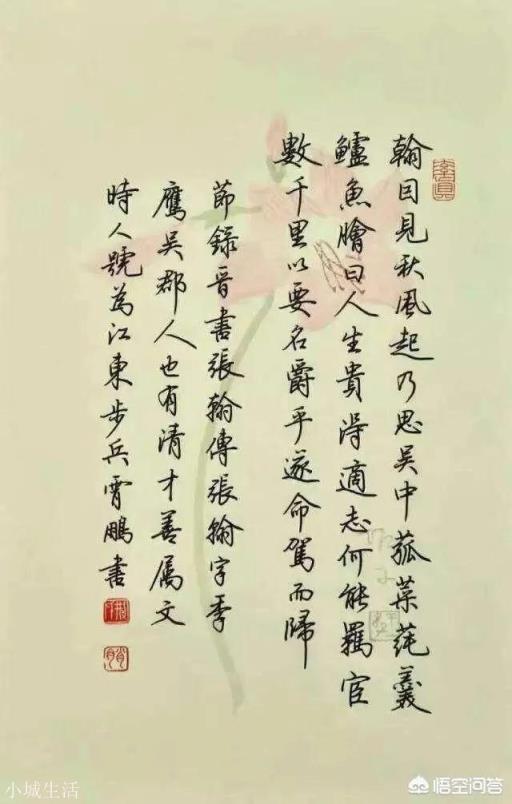 翰因見秋風起乃思吳中菰菜莼羹
鱸魚膾曰人生貴得適志何能羈宦
數千里以要名爵乎遂命駕而歸
節錄晉書張翰傳張翰字季
鷹吳郡人也有清才善属文
時人號為江東步兵霄鵬書
小城生活
悟空问答